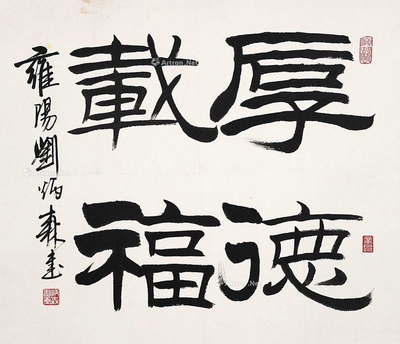 厚德
載福
雍陽劉炳森書
Artron.Net